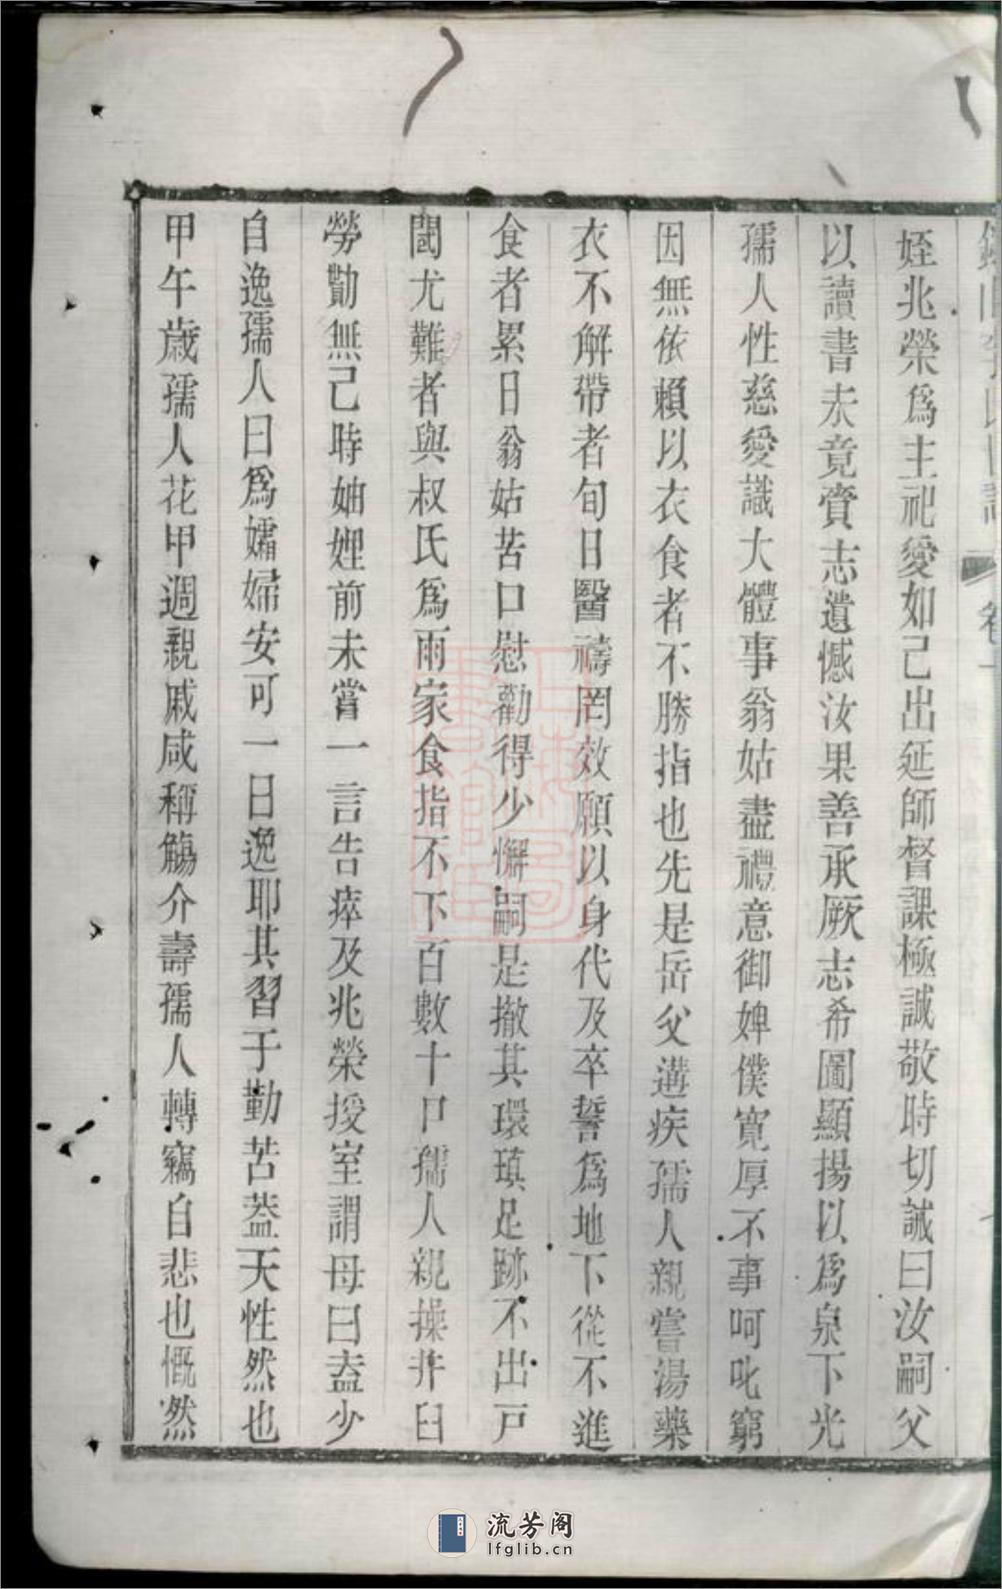 姪兆榮爲主祀愛如己出延師督課極誠敬時切誡曰汝嗣父
以讀書未竟賫志遺憾汝果善承厥志希圖顯揚以爲泉下光
孺人性慈愛識大體事翁姑盡禮意御婢僕寬厚不事呵叱窮
因無依賴以衣食者不勝指也先是岳父遘疾孺人親嘗湯藥
衣不解帶者旬日醫禱罔效願以身代及卒誓爲地下從不進
食者累日翁姑苦口慰勸得少懈嗣是撤其環瑱足跡不出戸
閫尤難者與叔氏爲兩家食指不下百數十口孺人親操井臼
勞勩無己時妯娌前未嘗一言告瘁及兆榮授室謂母曰盍少
自逸孺人曰爲孀婦安可一日逸耶其習于勤苦葢天性然也
甲午歲孺人花甲週親戚咸稱觴介壽孺人轉竊自悲也慨然
流芳阁
lfglib.cn